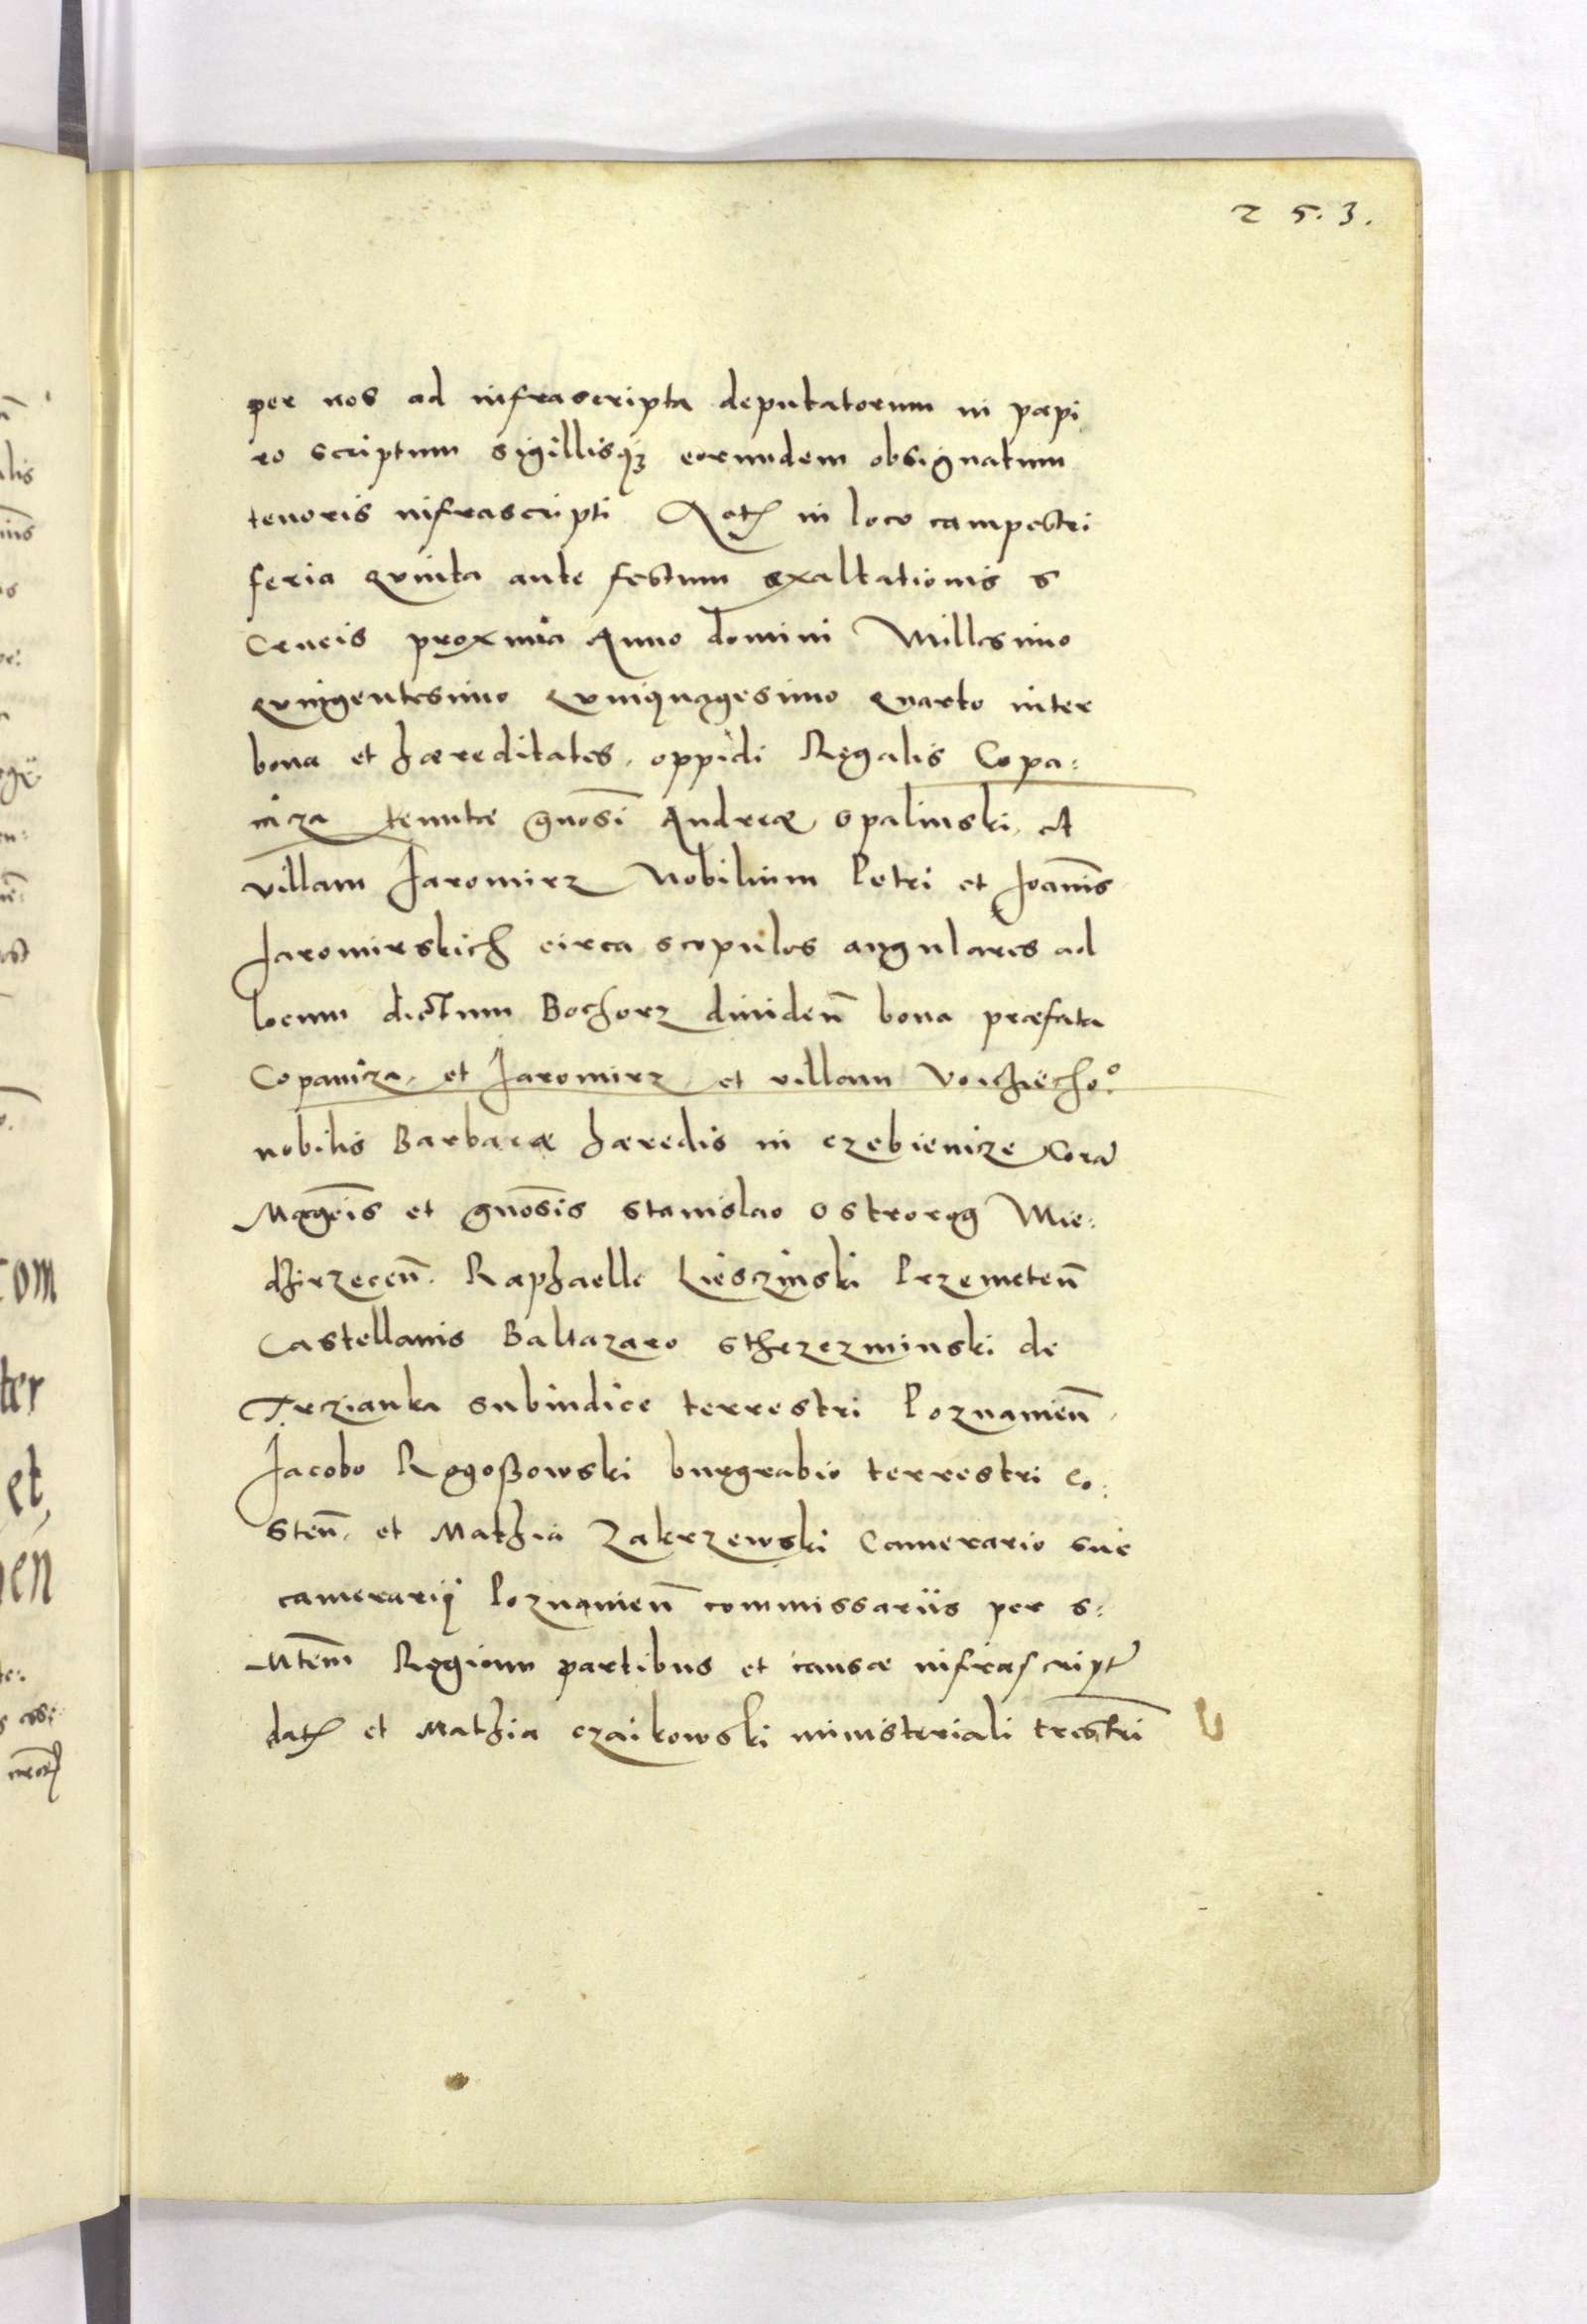 2 5. 3.
per nos ad infrascripta deputatorum in papi
ro scriptum sigillisq3 eorundem obsignatum
tenoris infrascripti Act in loco campestri
feria quinta ante festum exaltationis s
Crucis proxima Anno domini Millesimo
quingentesimo quinquagesimo quarto inter
bona et hæreditates, oppidi Regalis Copa:
nicza tenutæ gnosi Andreæ Opalinski, et
villam Jaromirz Nobilium Petri et Joanis
Jaromirskich circa scopulos angulares ad
locum dictum Bochorz dividen bona præfata
Copanicza, et Jaromirz, et villam Voichiecho°
nobilis Barbaræ hæredis in czebienicze Cora
Magcis et gnosis Stanislao Ostrorog Mie:
dzirzecen. Raphaele Liesczinski Przemeten
Castellanis Baltazaro Stherzminski de
Trzianka subiudice terrestri Poznanien,
Jacobo Rogoßowski burgrabio terrestri Co:
sten, et Mathia Zakrzewski Camerario suc
camerarij Poznanien commissariis per S:
Mtem Regiam partibus et causæ infrascript
dat et Mathia czaikowski ministeriali trestri